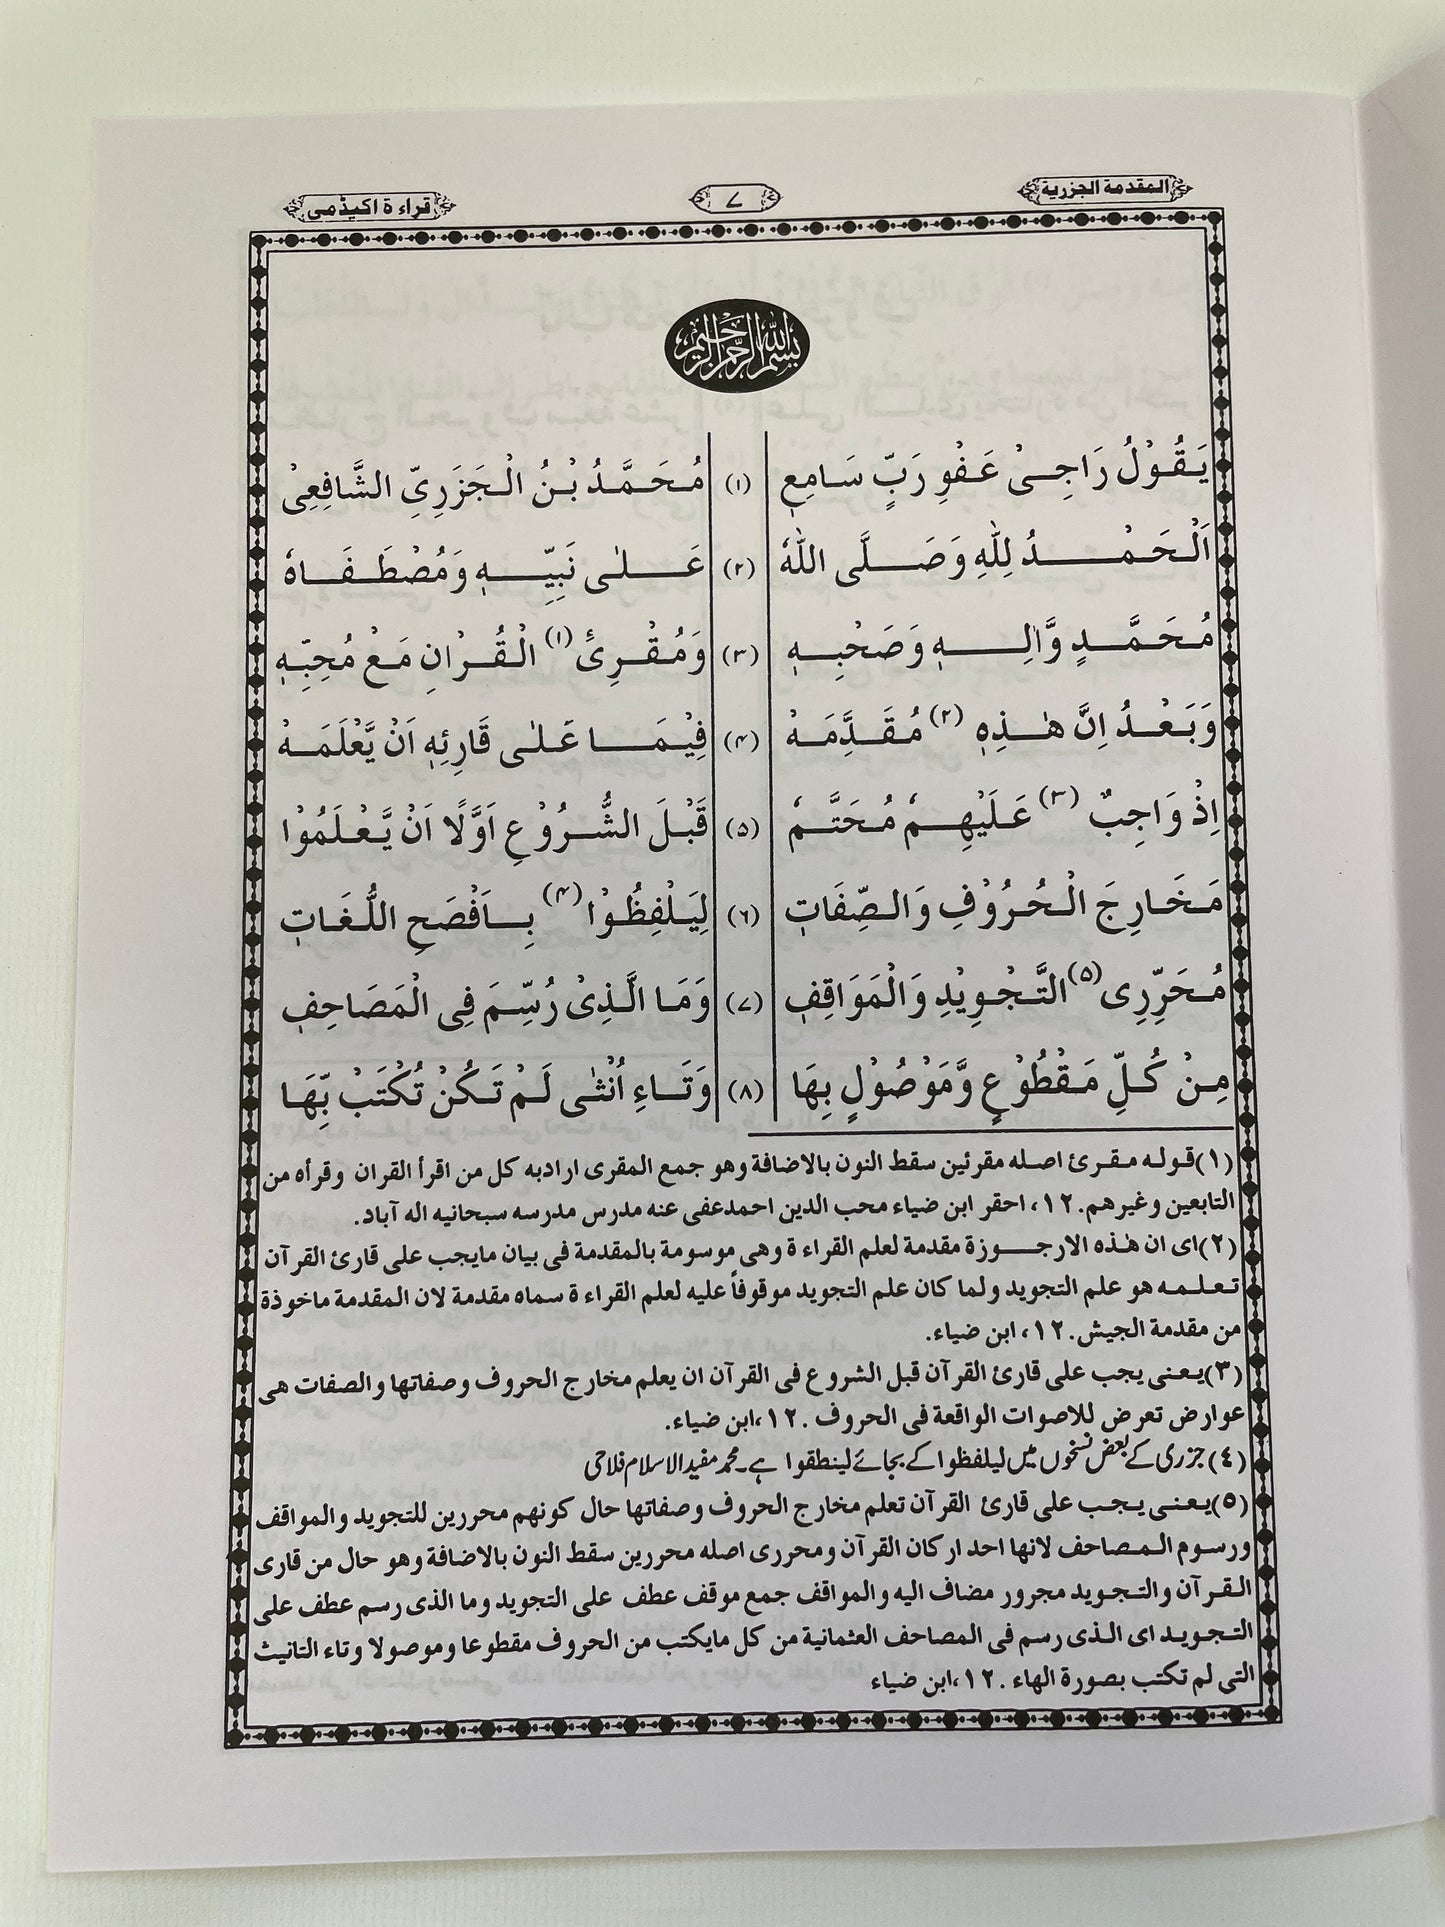 المقدمة الجزرية
۷
قراءة اکیڈمی
بسم الله الرحمن الرحيم
يَقُوْلُ رَاجِيْ عَفْوِ رَبٍّ سَامِعٖ (١) مُحَمَّدُ بْنُ الْجَزَرِيِّ الشَّافِعِيْ
اَلْحَمْدُ لِلّٰهِ وَصَلَّى اللّٰهُ (٢) عَلٰى نَبِيِّهٖ وَمُصْطَفَاهُ
مُحَمَّدٍ وَّاٰلِهٖ وَصَحْبِهٖ (٣) وَمُقْرِئُ (١) الْقُرْاٰنِ مَعْ مُحِبِّهٖ
وَبَعْدُ اِنَّ هٰذِهٖ (٢) مُقَدِّمَهْ (۴) فِيْمَا عَلٰى قَارِئِهٖ اَنْ يَّعْلَمَهْ
اِذْ وَاجِبٌ (٣) عَلَيْهِمُ مُحَتَّمُ (۵) قَبْلَ الشُّرُوْعِ اَوَّلًا اَنْ يَّعْلَمُوْا
مَخَارِجَ الْحُرُوْفِ وَالصِّفَاتِ (٦) لِيَلْفِظُوْا (۴) بِاَفْصَحِ اللُّغَاتِ
مُحَرِّرِى (۵) التَّجْوِيْدِ وَالْمَوَاقِفِ (۷) وَمَا الَّذِىْ رُسِّمَ فِى الْمَصَاحِفِ
مِنْ كُلِّ مَقْطُوْعٍ وَّمَوْصُوْلٍ بِهَا (٨) وَتَاءِ اُنْثٰى لَمْ تَكُنْ تُكْتَبْ بِّهَا
(١) قوله مقرئ اصله مقرئين سقط النون بالاضافة وهو جمع المقرى ارادبه كل من اقرأ القران وقرأه من
التابعين وغيرهم. ١٢، احقر ابن ضياء محب الدين احمدعفى عنه مدرس مدرسه سبحانيه اله آباد.
(٢) اى ان هٰذه الارجوزة مقدمة لعلم القراءة وهى موسومة بالمقدمة فى بيان مايجب على قارئ القرآن
تعلمه هو علم التجويد ولما كان علم التجويد موقوفاً عليه لعلم القراءة سماه مقدمة لان المقدمة ماخوذة
من مقدمة الجيش. ١٢، ابن ضياء.
(٣) يعنى يجب على قارئ القرآن قبل الشروع فى القرآن ان يعلم مخارج الحروف وصفاتها والصفات هى
عوارض تعرض للاصوات الواقعة فى الحروف. ١٢، ابن ضياء.
(٤) جزری کے بعض نسخوں میں لیلفظوا کے بجائے لینطقوا ہے۔ محمد مفید الاسلام فلاحی
(٥) يعنى يجب على قارئ القرآن تعلم مخارج الحروف وصفاتها حال كونهم محررين للتجويد والمواقف
ورسوم المصاحف لانها احد اركان القرآن ومحررى اصله محررين سقط النون بالاضافة وهو حال من قارى
القرآن والتجويد مجرور مضاف اليه والمواقف جمع موقف عطف على التجويد وما الذى رسم عطف على
التجويد اى الذى رسم فى المصاحف العثمانية من كل مايكتب من الحروف مقطوعا وموصولا وتاء التانيث
التى لم تكتب بصورة الهاء. ١٢، ابن ضياء